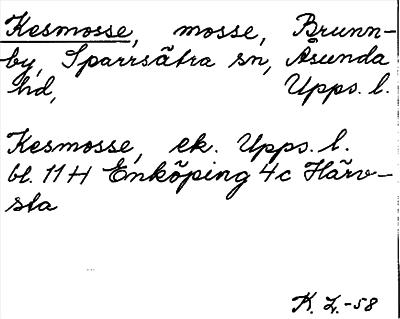 Kesmosse, mosse, Brunn-
by, Sparrsätra sn, Åsunda
hd, Upps. l.
Kesmosse, ek. Upps. l.
bl. 11 H Enköping 4c Härv-
sta
K. L. -58